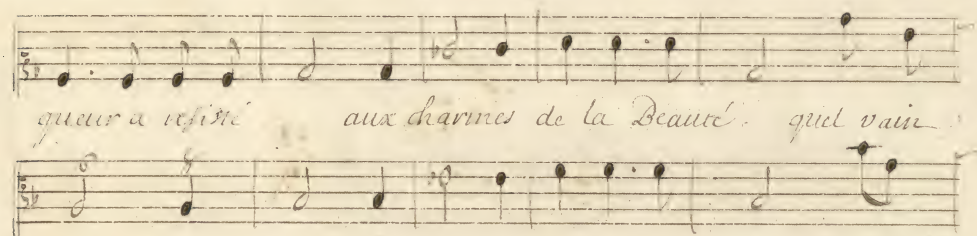 queur a resisté aux charmes de la Beauté. quel vain